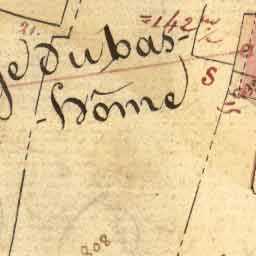 21.
=142
ge Dubas-
Hôme
S
808